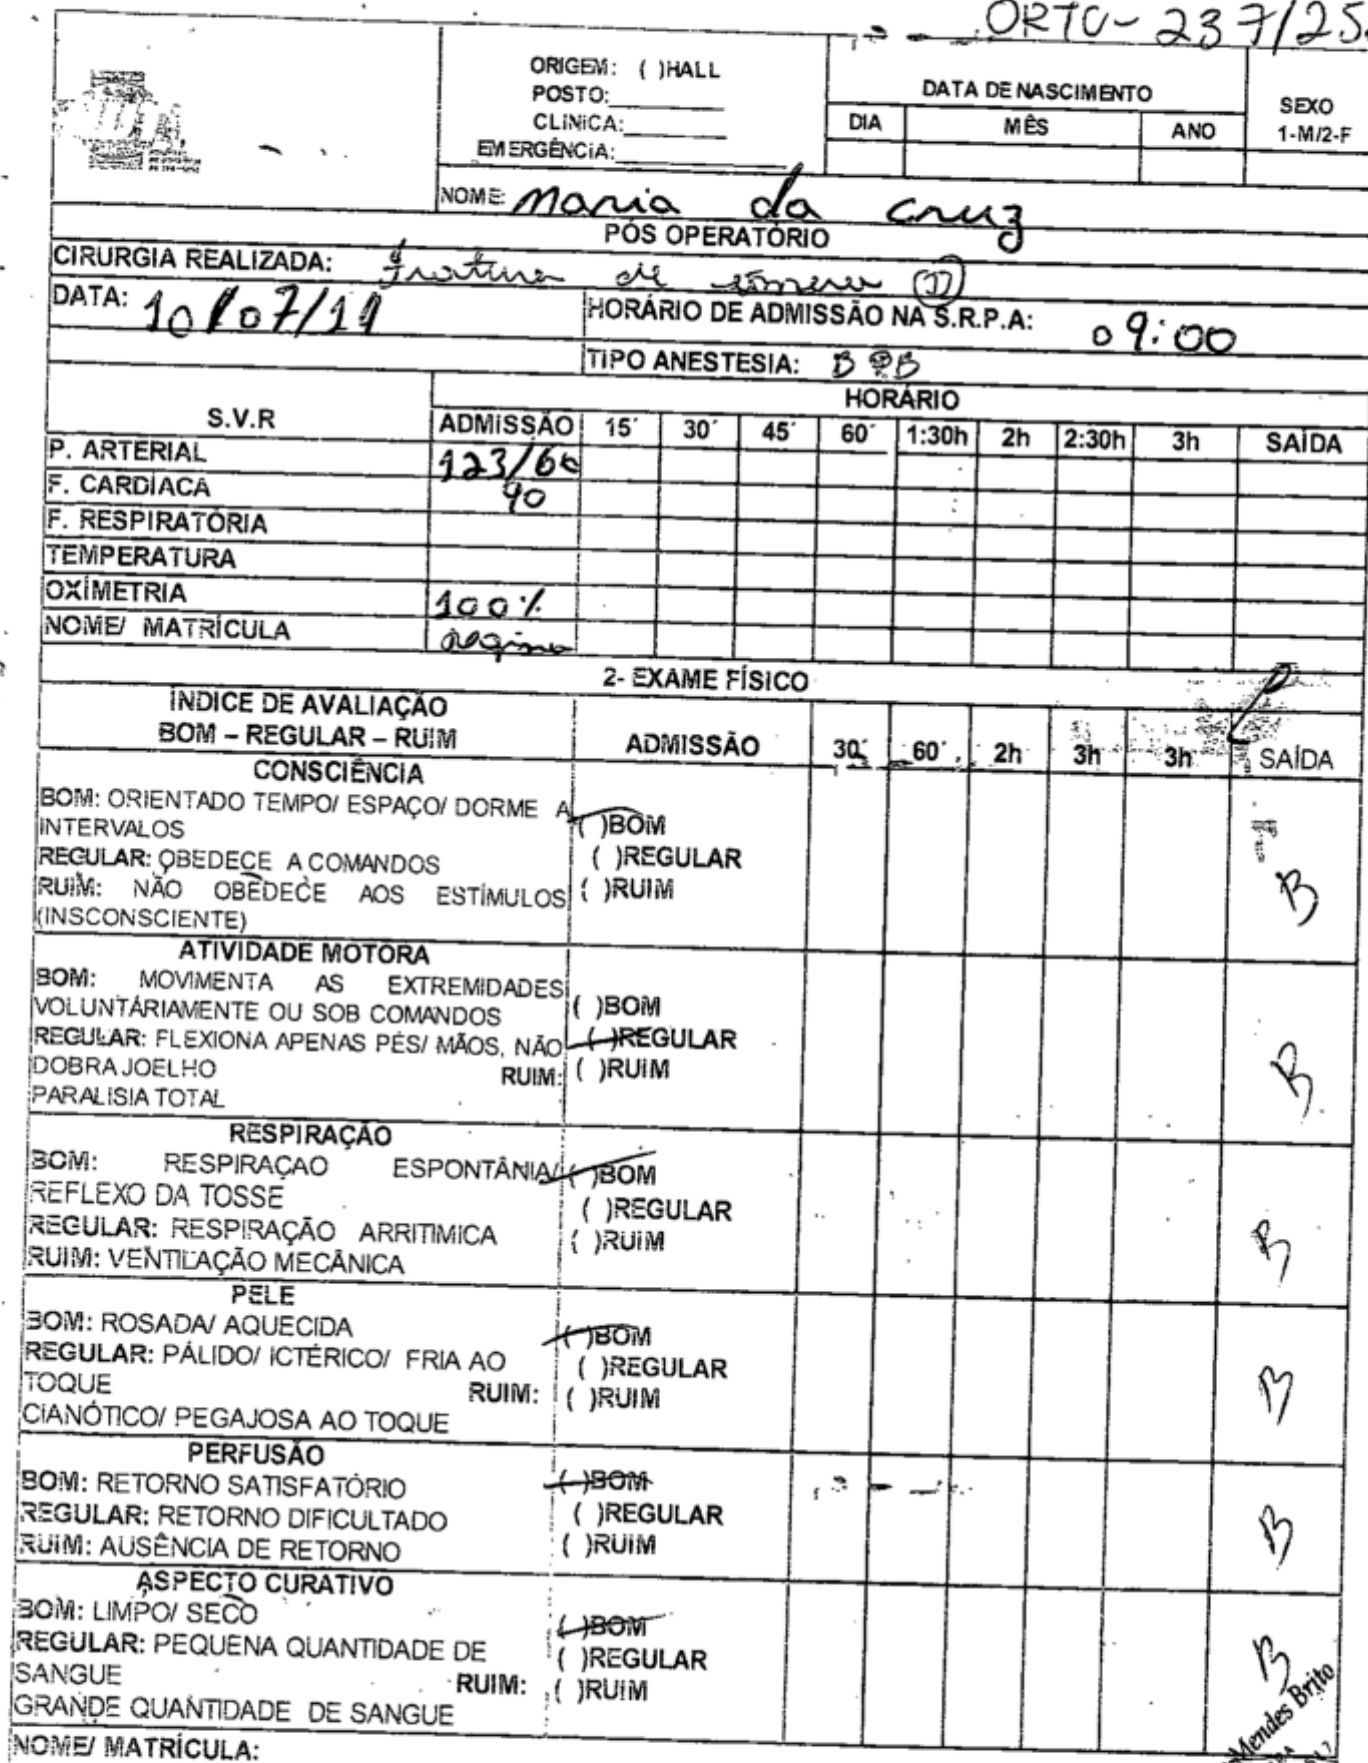 ORTO- 237/25
ORIGEM: ( )HALL
POSTO:
CLINICA:
EMERGÊNCIA:
DATA DE NASCIMENTO
DIA MÊS ANO
SEXO
1-M/2-F
NOME: Maria da Cruz
PÓS OPERATÓRIO
CIRURGIA REALIZADA: fratura de
DATA: 10/07/19
HORÁRIO DE ADMISSÃO NA S.R.P.A: 09:00
TIPO ANESTESIA: BPB
HORÁRIO
S.V.R ADMISSÃO 15´ 30´ 45´ 60´ 1:30h 2h 2:30h 3h SAÍDA
P. ARTERIAL 123/60
F. CARDÍACA 90
F. RESPIRATÓRIA
TEMPERATURA
OXÍMETRIA 100%
NOME/ MATRÍCULA
2- EXAME FÍSICO
ÍNDICE DE AVALIAÇÃO
BOM – REGULAR – RUIM
ADMISSÃO 30´ 60´ 2h 3h 3h SAÍDA
CONSCIÊNCIA
BOM: ORIENTADO TEMPO/ ESPAÇO/ DORME A
INTERVALOS
REGULAR: OBEDECE A COMANDOS
RUIM: NÃO OBEDECE AOS ESTÍMULOS
(INSCONSCIENTE)
( )BOM
( )REGULAR
( )RUIM
B
ATIVIDADE MOTORA
BOM: MOVIMENTA AS EXTREMIDADES
VOLUNTÁRIAMENTE OU SOB COMANDOS
REGULAR: FLEXIONA APENAS PÉS/ MÃOS, NÃO
DOBRA JOELHO RUIM:
PARALISIA TOTAL
( )BOM
( )REGULAR
( )RUIM
B
RESPIRAÇÃO
BOM: RESPIRAÇAO ESPONTÂNIA/
REFLEXO DA TOSSE
REGULAR: RESPIRAÇÃO ARRITIMICA
RUIM: VENTILAÇÃO MECÂNICA
( )BOM
( )REGULAR
( )RUIM
B
PELE
BOM: ROSADA/ AQUECIDA
REGULAR: PÁLIDO/ ICTÉRICO/ FRIA AO
TOQUE RUIM:
CIANÓTICO/ PEGAJOSA AO TOQUE
( )BOM
( )REGULAR
( )RUIM
B
PERFUSÃO
BOM: RETORNO SATISFATÓRIO
REGULAR: RETORNO DIFICULTADO
RUIM: AUSÊNCIA DE RETORNO
( )BOM
( )REGULAR
( )RUIM
B
ASPECTO CURATIVO
BOM: LIMPO/ SECO
REGULAR: PEQUENA QUANTIDADE DE
SANGUE RUIM:
GRANDE QUANTIDADE DE SANGUE
( )BOM
( )REGULAR
( )RUIM
B
Mendes Brito
NOME/ MATRÍCULA: